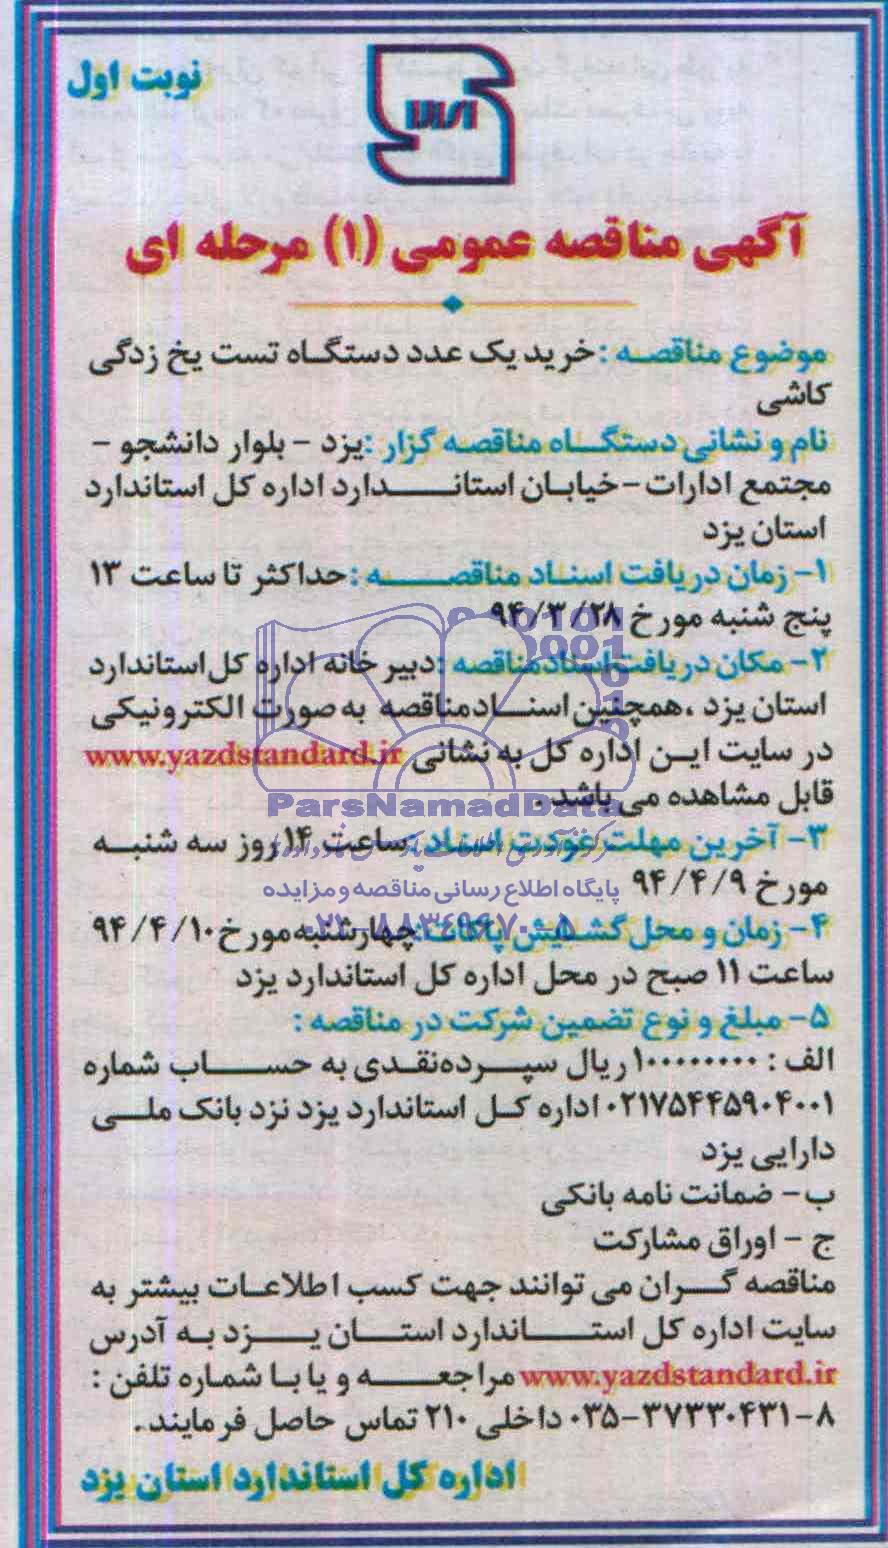 نوبت اول
آگهی مناقصه عمومی (۱) مرحله ای
موضوع مناقصـه : خرید یک عدد دستگـاه تست یخ زدگی
کاشی
نام و نشانی دستگـــاه مناقصـه گزار :یزد - بلوار دانشجو -
مجتمع ادارات - خیابـان استانـــــدارد اداره کل استاندارد
استان یزد
۱- زمان دریافت اسنـاد مناقصـــــه : حداکثر تا ساعت ۱۳
پنج شنبه مورخ ۹۴/۳/۲۸
۲- مکان دریافت اسناد مناقصه : دبیر خانه اداره کل استاندارد
استان یزد ،همچنین اسنـــاد مناقصه به صورت الکترونیکی
در سایت ایـن اداره کل به نشانی www.yazdstandard.ir
قابل مشاهده می باشد.
ParsNamadData
۳- آخرین مهلت عودت اسناد : ساعت ۱۴ روز سه شنبـه
مورخ ۹۴/۴/۹
پایگاه اطلاع رسانی مناقصه و مزایده
۰۲۱-۸۸۳۴۹۶۷۰-۵
۴- زمان و محل گشـایش پاکات: چهارشنبه مورخ ۹۴/۴/۱۰
ساعت ۱۱ صبح در محل اداره کل استاندارد یزد
۵- مبلغ و نوع تضمین شرکت در مناقصه :
الف : ۱۰۰۰۰۰۰۰۰ ریال سپـــرده نقـدی به حســـاب شماره
۰۲۱۷۵۴۴۵۹۰۴۰۰۱ اداره کـل استاندارد یزد نزد بانک ملـی
دارایی یزد
ب - ضمانت نامه بانکی
ج - اوراق مشارکت
مناقصه گـــران می توانند جهت کسب اطلاعـات بیشتر به
سایت اداره کل استـــــاندارد استـــان یـــزد بـه آدرس
www.yazdstandard.ir مراجعـــــه و یا بـا شمـاره تلفن :
۰۳۵-۳۷۳۳۰۴۳۱-۸ داخلی ۲۱۰ تماس حاصل فرمایند.
اداره کل استاندارد استان یزد